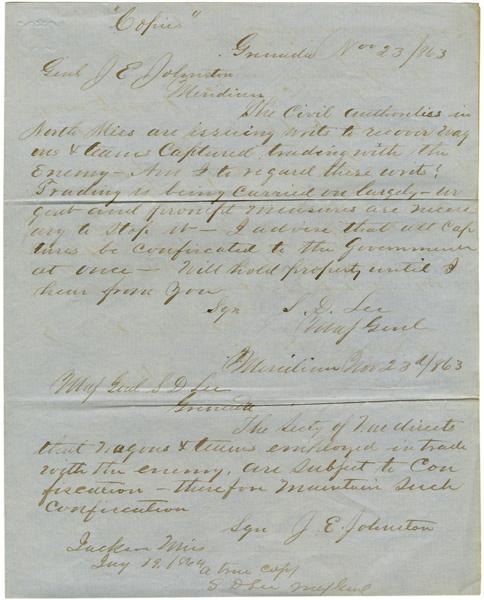 "Copies"
Grenada Nov 23/1863
Genl J E Johnston
Meridian
The Civil authorities in
North Miss are issuing writs to recover Wag
ons & teams Captured, trading with the
Enemy - Am I to regard these writs?
Trading is being carried on largely - ur
gent and prompt measures are necess
ary to stop it - I advise that all Cap
tures be confiscated to the Government
at once - Will hold property until I
hear from You
Sgn S. D. Lee
Maj Genl
Meridian Nov 23d/1863
Maj Genl S D Lee
Grenada
The Secty of War directs
that Wagons & teams employed in trade
with the enemy, are subject to Con
fiscation - therefore Maintain Such
Confiscation
Sgn J. E. Johnston
Jackson Miss
Jany 19, 1864 a true copy
S D Lee Maj Genl